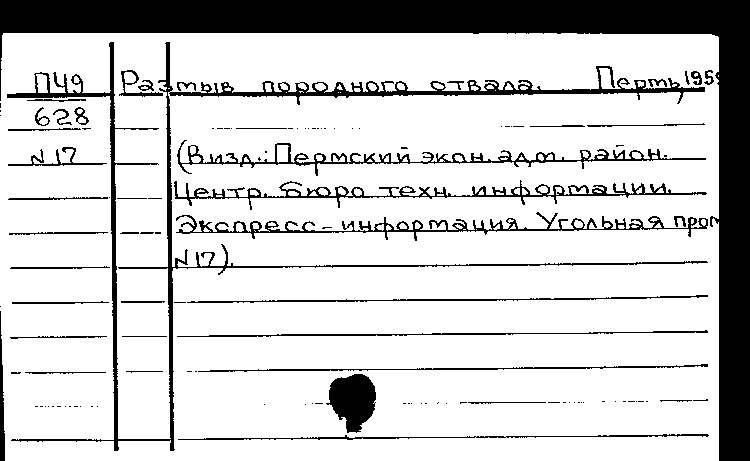 П49 Размыв породного отвала. Пермь, 1959
628
N 17 (В изд.: Пермский экон. адм. район.
Центр. бюро техн. информации.
Экспресс-информация. Угольная пром
N17).